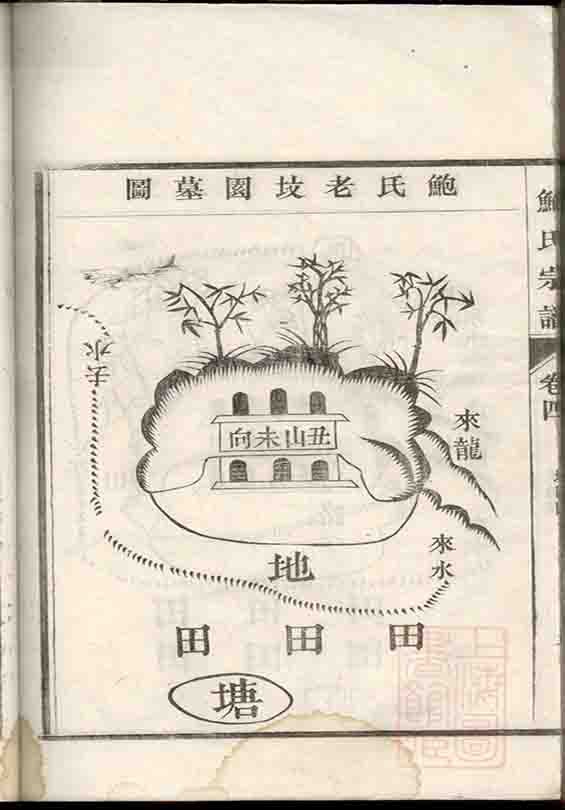 鮑氏宗譜
卷四
鮑氏老坟園墓圖
去水
丑山未向
來龍
來水
地
田 田 田
塘